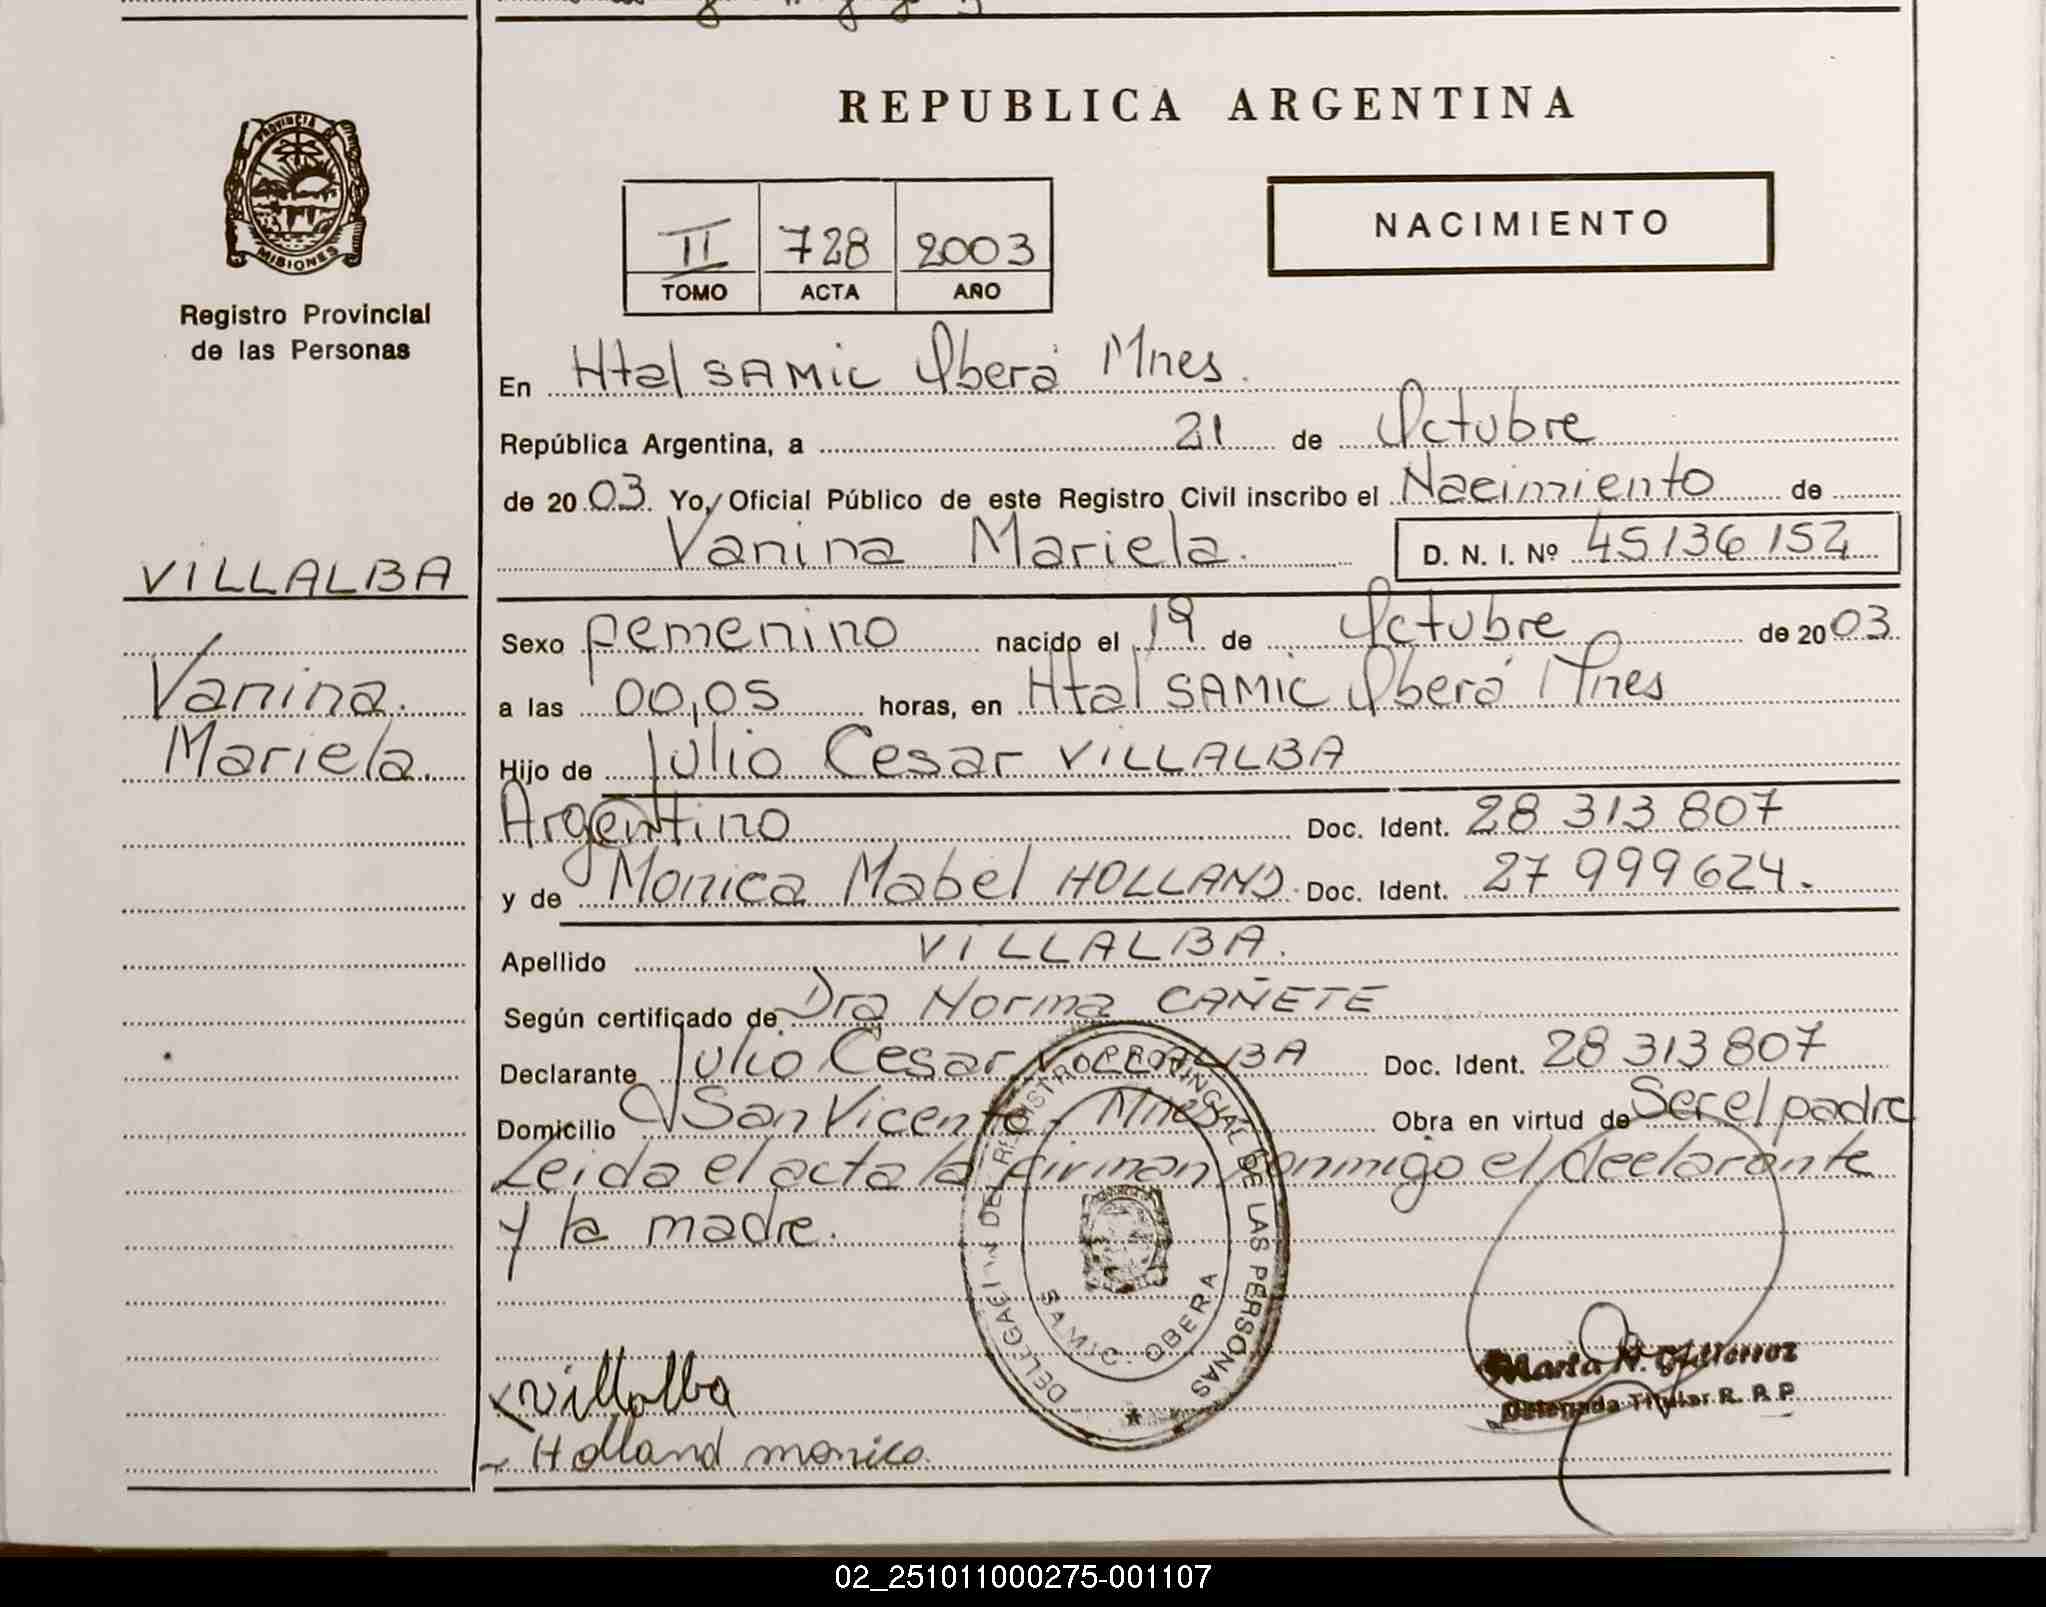 REPUBLICA ARGENTINA
PROVINCIA DE
MISIONES
Registro Provincial
de las Personas
II 728 2003
TOMO ACTA AÑO
NACIMIENTO
En Htal SAMIC Oberá Mnes.
República Argentina, a 21 de Octubre
de 2003. Yo, Oficial Público de este Registro Civil inscribo el Nacimiento de
Vanina Mariela. D. N. I. Nº 45136152
VILLALBA
Vanina
Mariela.
Sexo femenino nacido el 19 de Octubre de 2003
a las 00,05 horas, en Htal SAMIC Oberá Mnes
Hijo de Julio Cesar VILLALBA
Argentino Doc. Ident. 28 313 807
y de Monica Mabel HOLLAND. Doc. Ident. 27 999 624.
Apellido VILLALBA.
Según certificado de Dra Norma CAÑETE
Declarante Julio Cesar VILLALBA Doc. Ident. 28 313 807
Domicilio San Vicente - Mnes Obra en virtud de Ser el padre
Leida el acta la firman conmigo el declarante
y la madre.
DELEGACION DEL REGISTRO PROVINCIAL DE LAS PERSONAS
SAMIC - OBERA
x Villalba
Holland monica.
Marta N. Gutierrez
Delegada Titular R. P. P.
02_251011000275-001107